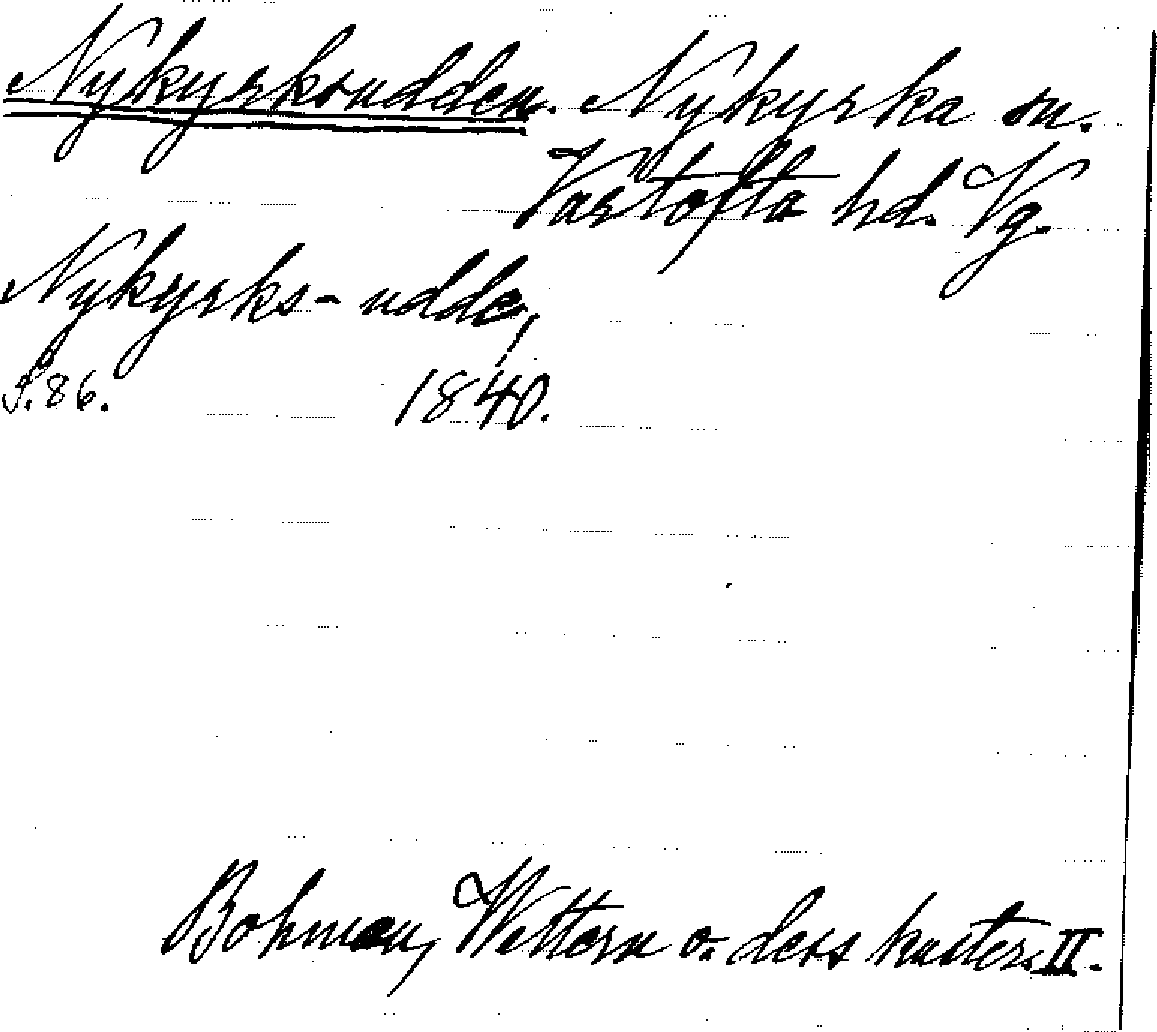 Nykyrksudden. Nykyrka sn.
Vartofta hd. Vg.
Nykyrks-udde,
S. 86. 1840.
Bohman, Wettern o. dess kuster. II.